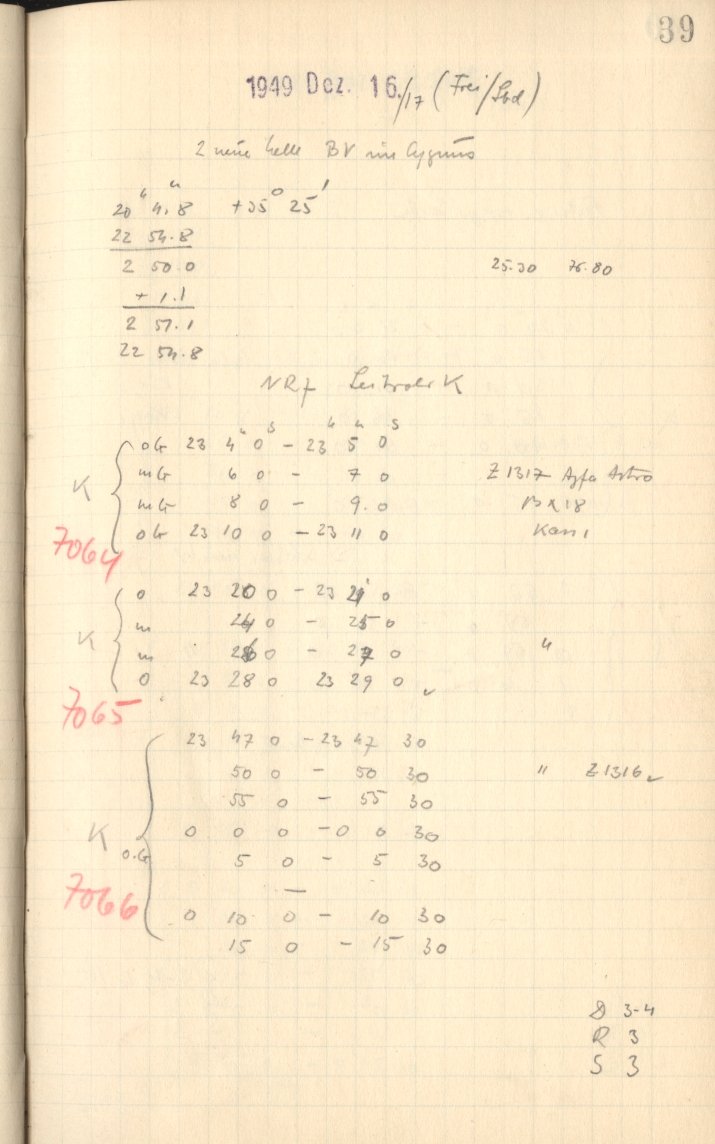 39
1949 Dez. 16./17 (Frei/Sbd)
2 neue helle BV im Cygnus
h m
20 4.8 +35° 25'
22 54.8
2 50.0 25.30 76.80
+ 1.1
2 51.1
22 54.8
NR 7 K
m s h m s
oG 23 4 0 - 23 5 0
mG 6 0 - 7 0 Z 1317 Agfa Astro
K mG 8 0 - 9.0
oG 23 10 0 - 23 11 0
7064
o 23 20 0 - 23 21 0
m 24 0 - 25 0
K m 26 0 - 27 0 "
o 23 28 0 23 29 0
7065
23 47 0 - 23 47 30
50 0 - 50 30 " Z 1316
55 0 - 55 30
K 0 0 0 - 0 0 30
o.G 5 0 - 5 30
7066
—
0 10 0 - 10 30
15 0 - 15 30
D 3-4
R 3
S 3